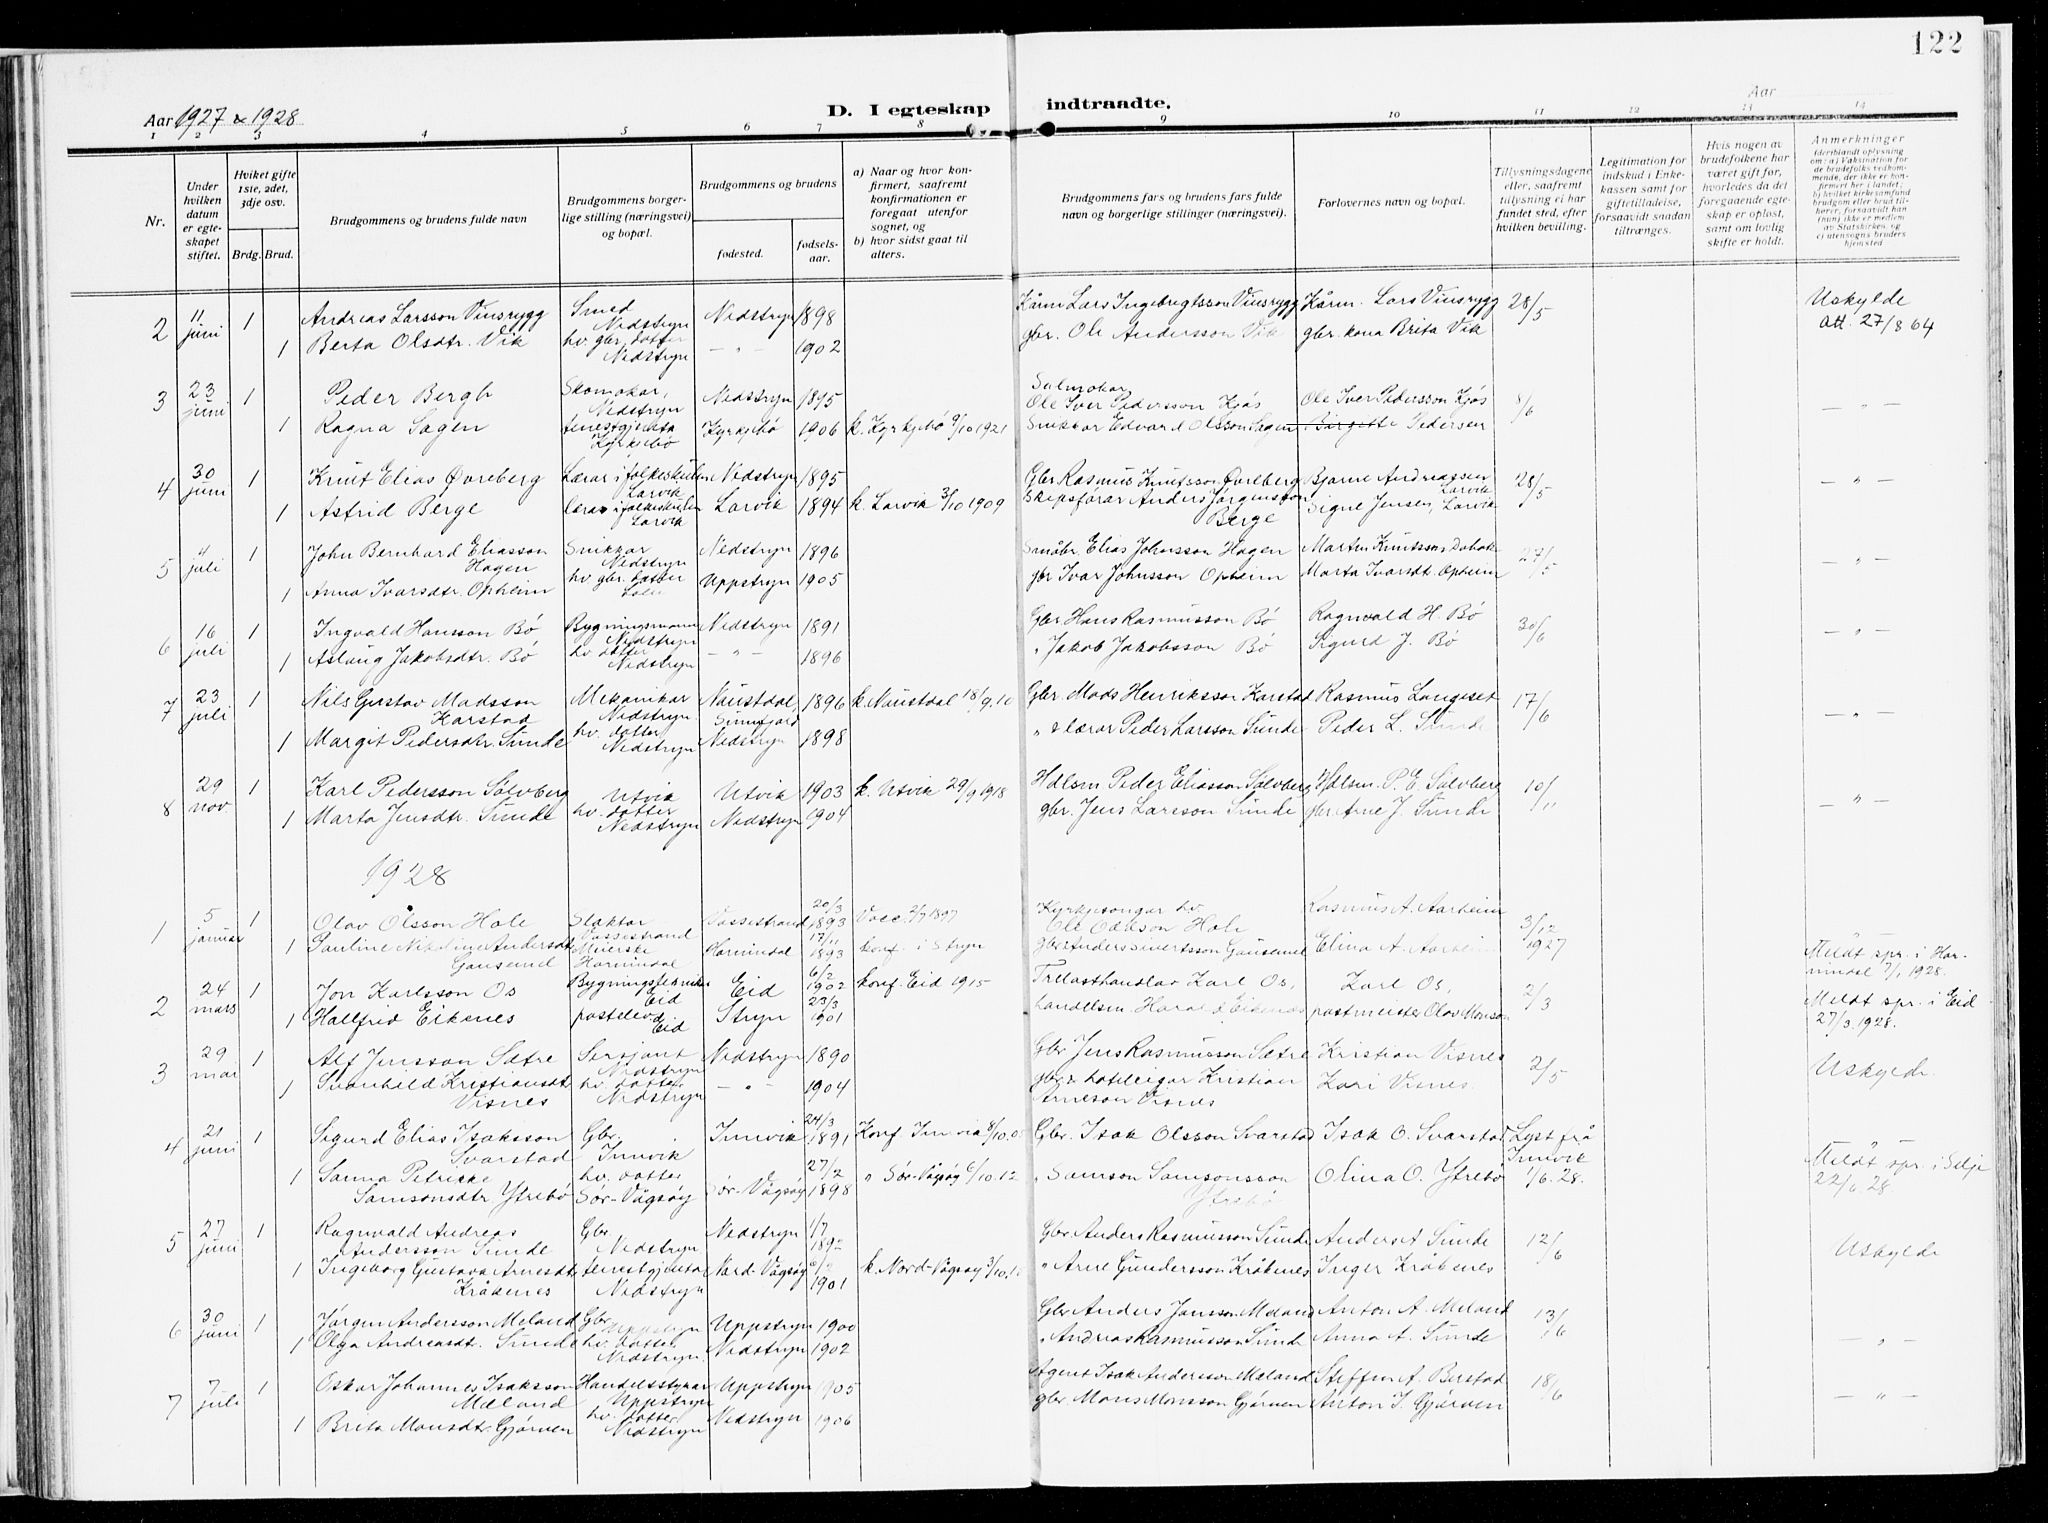 122
Aar 1927 & 1928
D. I egteskap indtraadte.
Aar
1 2 3 4 5 6 7 8 9 10 11 12 13 14
Nr.
Under hvilken datum er egteskapet stiftet.
Hvilket gifte 1ste, 2det, 3dje osv.
Brdg. Brud.
Brudgommens og brudens fulde navn
Brudgommens borgerlige stilling (næringsvei) og bopæl.
Brudgommens og brudens
fødested.
fødselsaar.
a) Naar og hvor konfirmert, saafremt konfirmationen er foregaat utenfor sognet, og
b) hvor sidst gaat til alters.
Brudgommens fars og brudens fars fulde navn og borgerlige stillinger (næringsvei).
Forlovernes navn og bopæl.
Tillysningsdagene eller, saafremt tillysning ei har fundet sted, efter hvilken bevilling.
Legitimation for indskud i Enkekassen samt for giftetilladelse, forsaavidt saadan tiltrænges.
Hvis nogen av brudefolkene har været gift før, hvorledes da det foregaaende egteskap er opløst, samt om lovlig skifte er holdt.
Anmerkninger (deriblandt oplysning om: a) Vaksination for de brudefolks vedkommende, der ikke er konfirmert her i landet; b) hvilket kirkesamfund brudgom eller brud tilhører, forsaavidt han (hun) ikke er medlem av Statskirken, og c) utensogns bruders hjemsted
2 11 juni 1 Andreas Larsson Vinsrygg Smed Nedstryn Nedstryn 1898 Kårm Lars Ingebregtsson Vinsrygg Kårm. Lars Vinsrygg 28/5 Uskylde
1 Berta Olsdtr. Vik hv. gbr. dotter Nedstryn — " — 1902 gbr. Ole Andersson Vik gbr. kona Brita Vik att. 27/8 64
3 23 juni 1 Peder Bergh Skomakar, Nedstryn Nedstryn 1895 Salmakar Ole Iver Pedersson Kjøs Ole Iver Pedersson Kjøs 8/6 — " —
1 Ragna Sagen tenestgjenta Kyrkjebø Kyrkjebø 1906 k. Kyrkjebø 9/10 1921 Snikkar Edvard Olsson Sagen Birgitte Pedersen
4 30 juni 1 Knut Elias Øvreberg Lærar i folkeskulen Larvik Nedstryn 1895 Gbr Rasmus Knutsson Øvreberg Bjarne Andreassen Larvik 28/5 — " —
1 Astrid Berge lærar i folkeskulen Larvik Larvik 1894 k. Larvik 3/10 1909 Skipsførar Anders Jørgensson Berge Signe Jensen, Larvik
5 4 juli 1 John Bernhard Eliasson Hagen Snikkar Nedstryn Nedstryn 1896 Småbr. Elias Johnsson Hagen Martin Knutsson 27/5 — " —
1 Anna Ivarsdtr. Opheim hv gbr. dotter Uppstryn 1905 gbr Ivar Johnsson Opheim Marta Ivarsdt. Opheim
6 16 juli 1 Ingvald Hansson Bø Bygningsmann Nedstryn Nedstryn 1891 Gbr Hans Rasmusson Bø Ragnvald H. Bø 30/6 — " —
1 Aslaug Jakobsdtr. Bø hv. dotter Nedstryn — " — 1896 " Jakob Jakobsson Bø Sigurd J. Bø
7 23 juli 1 Nils Gustav Madsson Karstad Mekanikar Nedstryn Naustdal, Sunnfjord 1896 k. Naustdal 18/9.10 Gbr. Mads Henriksson Karstad Rasmus Langeset 17/6 — " —
1 Margit Pedersdtr. Sunde hv. dotter Nedstryn Nedstryn 1898 " & lærar Peder Larsson Sunde Peder L. Sunde
8 29 nov. 1 Karl Pedersson Sølvberg Utvik Utvik 1903 k. Utvik 29/9 1918 Hdlsm Peder Eliasson Sølvberg Hdlsm. P. E. Sølvberg 10/11 — " —
1 Marta Jensdtr. Sunde hv. dotter Nedstryn Nedstryn 1904 gbr. Jens Larsson Sunde gbr Arne J. Sunde
1928
1 5 januar 1 Olav Olsson Hole Slaktar Vassestrand Vassestrand 20/3 1893 Vacc. 2/7 1897 Kyrkjesongar hv. Ole Hole Rasmus A. Aarheim 3/12 1927
1 Pauline Nikoline Andersdt Gausemel Meierske Hornindal Hornindal 17/11 1893 konf. i Stryn gbr Anders Sivertsson Gausemel Elina A. Aarheim Meldt spr. i Hornindal 7/1 1928.
2 24 mars 1 Jon Karlsson Os Bygningstekniker Eid Eid 6/2 1902 konf. Eid 1915 Trelasthandlar Karl Os, Karl Os, 2/3 Meldt spr. i Eid 27/3.1928.
1 Hallfrid Eikenes postelev Eid Stryn 23/3 1901 handelsm. Harald Eikenes postmeister Olav Monson
3 29 mai 1 Alf Jensson Sætre Sersjant Nedstryn Nedstryn 1890 Gbr Jens Rasmusson Sætre Kristian Visnes 2/5 Uskylde.
1 Svanhild Kristiansdt Visnes hv. dotter Nedstryn — " — 1904 gbr & hoteleigar Kristian Arneson Visnes Kari Visnes.
4 21 juni 1 Sigurd Elias Isaksson Svarstad Gbr. Innvik Innvik 24/3 1891 Konf. Innvik 8/10.05 Gbr. Isak Olsson Svarstad Isak O. Svarstad Lyst frå Innvik 1/6.28.
1 Sanna Petrikke Samsonsdtr Ytrebø hv. dotter Sør-Vågsøy Sør-Vågsøy 27/2 1898 " Sør-Vågsøy 6/10.12 " Samson Samsonsson Ytrebø Olina O. Ytrebø Meldt spr. i Selje 22/6.28.
5 27 juni 1 Ragnvald Andreas Andersson Sunde Gbr. Nedstryn Nedstryn 1/7 1892 Gbr Anders Rasmusson Sunde Anders Sunde 12/6 Uskylde
1 Ingeborg Gustava Arnesdt Kråkenes tenestgjenta Nedstryn Nord-Vågsøy 1901 k. Nord-Vågsøy " Arne Gundersson Kråkenes Inger Kråkenes
6 30 juni 1 Jørgen Andersson Meland Gbr. Uppstryn Uppstryn 1900 Gbr Anders Jansson Meland Anton A. Meland 13/6 — " —
1 Olga Andreasdt. Sunde hv. dotter Nedstryn. Nedstryn 1902 " Andreas Rasmusson Sunde Anna A. Sunde
7 7 juli 1 Oskar Johannes Isaksson Mæland Handelsstyrar Uppstryn Uppstryn 1905 Agent Isak Andersson Mæland Steffen A. Berstad 18/6 — " —
1 Brita Monsdtr Gjørven hv. dotter Nedstryn Nedstryn 1906 gbr Mons Monsson Gjørven Anton I. Gjørven